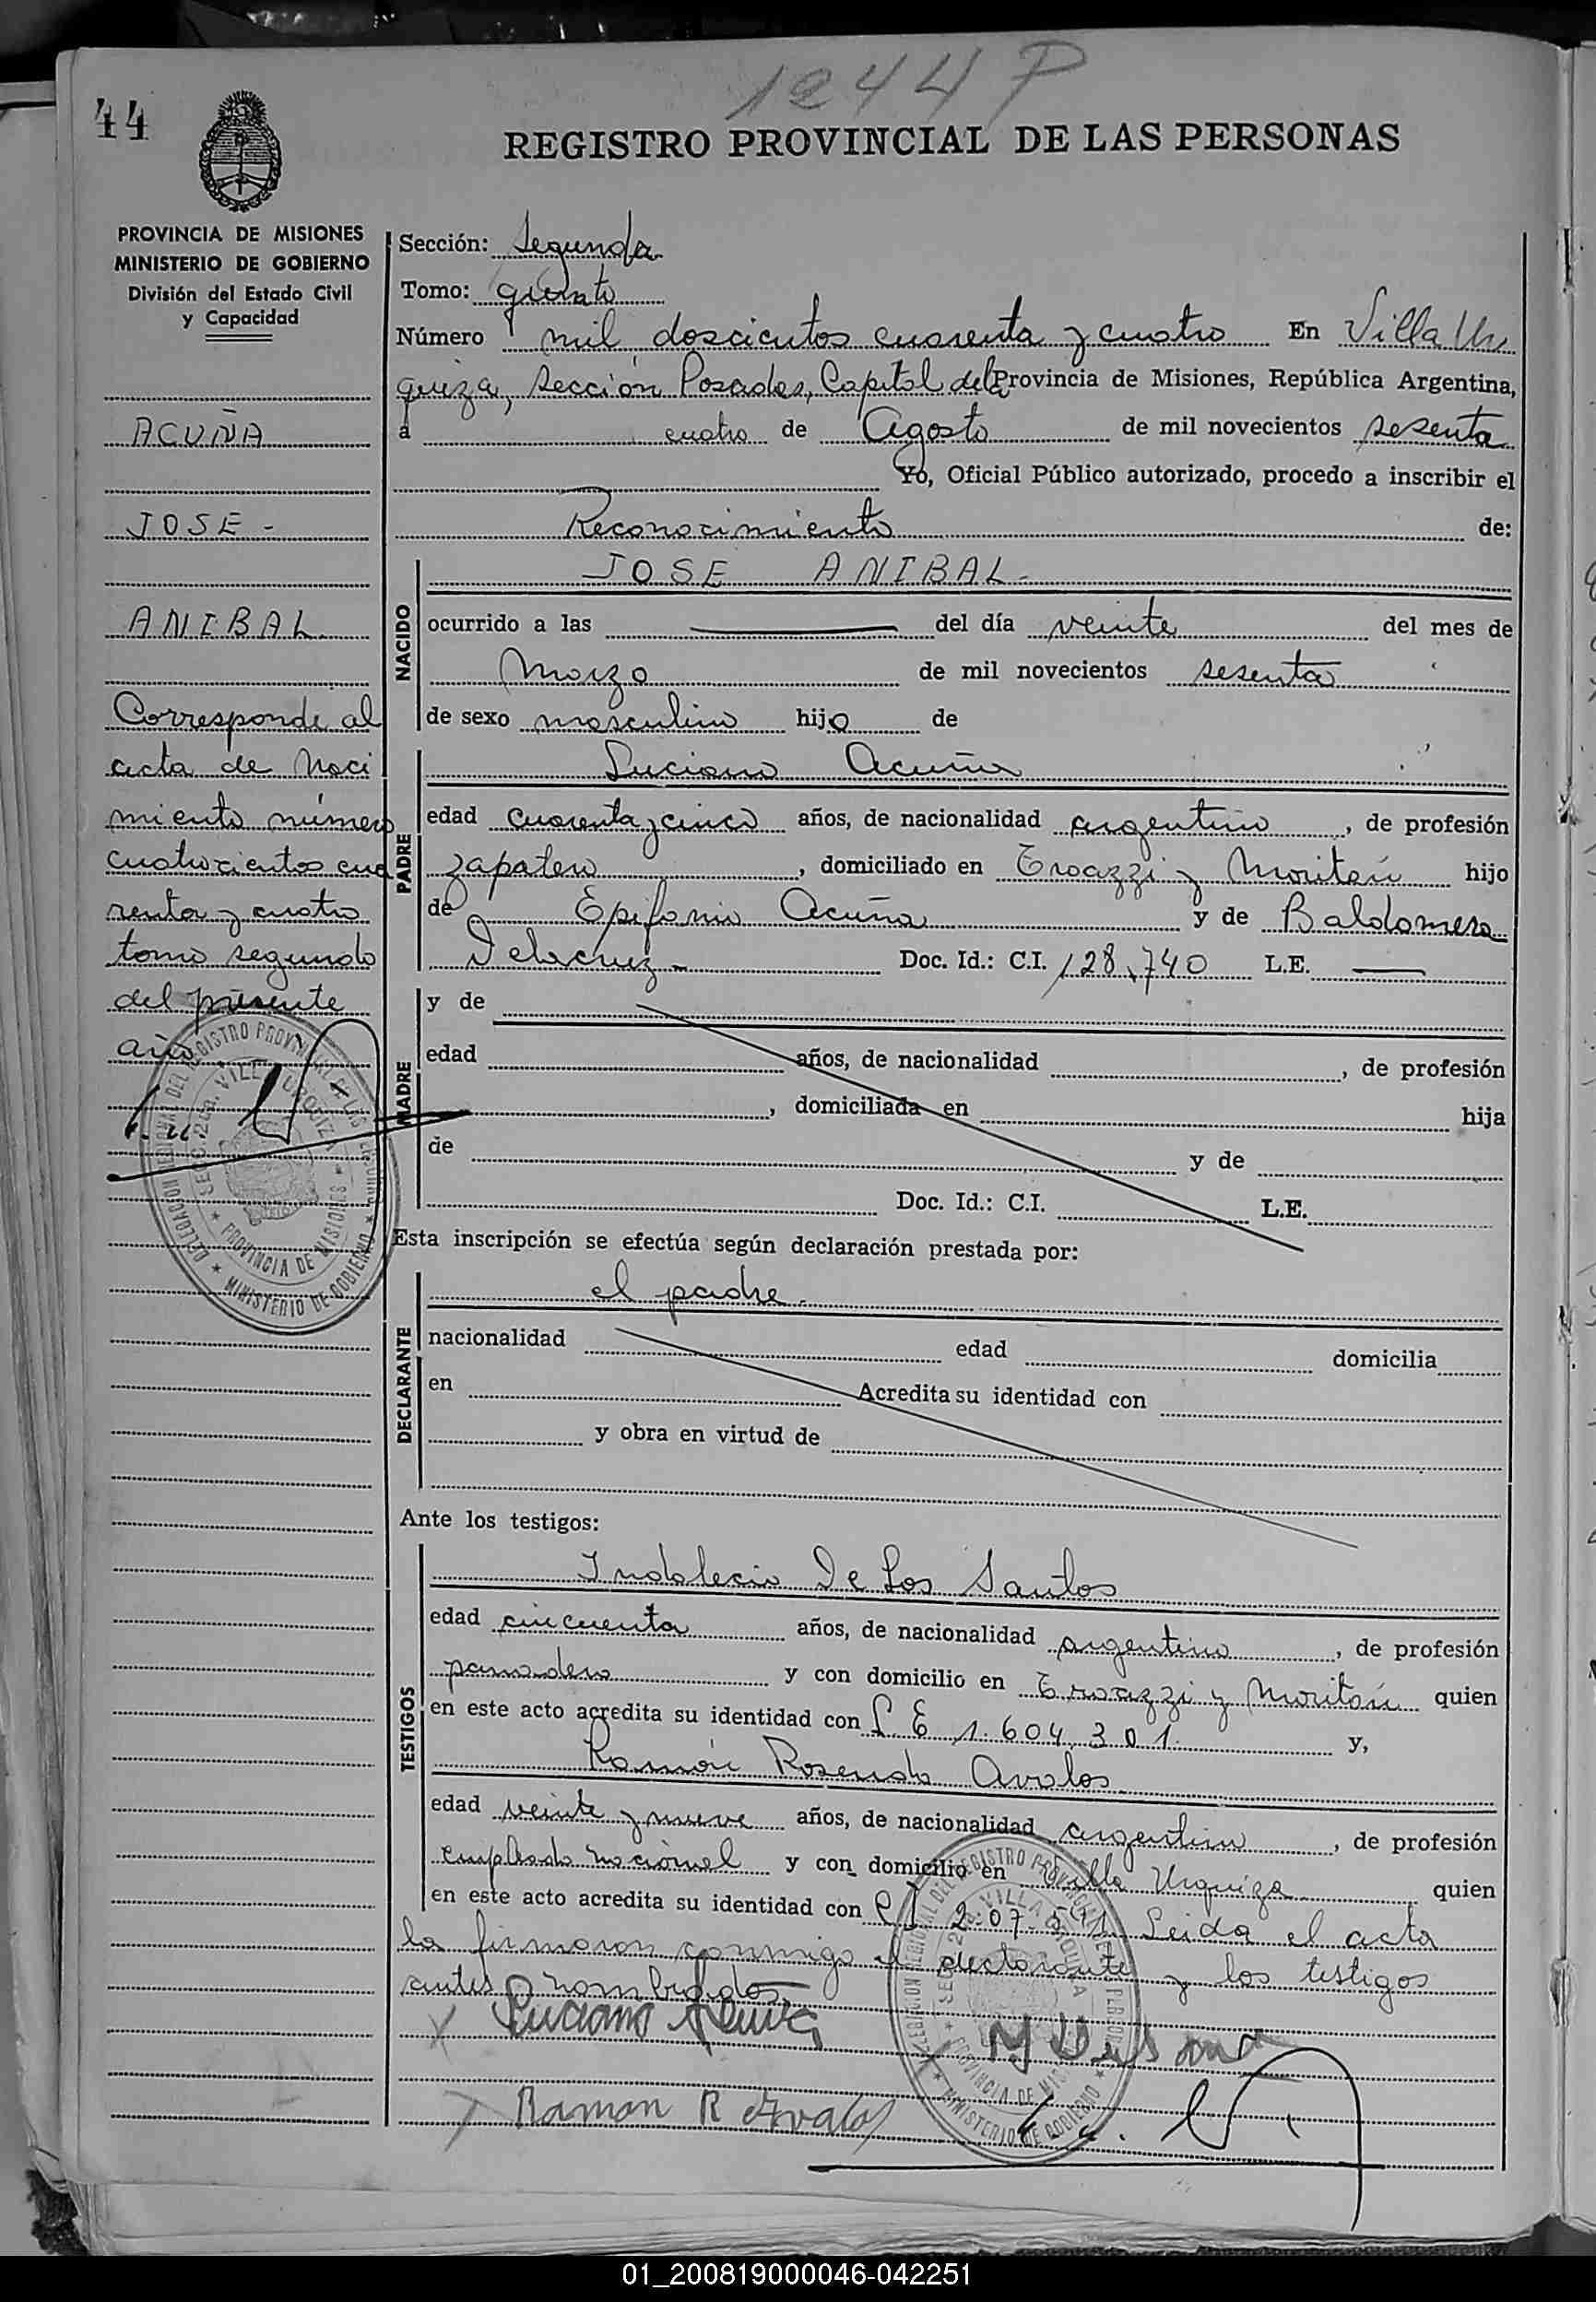 1244 P
44
REGISTRO PROVINCIAL DE LAS PERSONAS
PROVINCIA DE MISIONES
MINISTERIO DE GOBIERNO
División del Estado Civil
y Capacidad
ACUÑA
JOSE -
ANIBAL
Corresponde al
acta de Naci
miento número
cuatrocientos cua
renta y cuatro
tomo segundo
del presente
año
Sección: Segunda
Tomo: quinto
Número mil doscientos cuarenta y cuatro En Villa Ur
quiza, Sección Posadas, Capital de la Provincia de Misiones, República Argentina,
a cuatro de Agosto de mil novecientos sesenta
Yo, Oficial Público autorizado, procedo a inscribir el
Reconocimiento de:
NACIDO
JOSE ANIBAL -
ocurrido a las del día veinte del mes de
Marzo de mil novecientos sesenta
de sexo masculino hijo de
PADRE
Luciano Acuña
edad cuarenta y cinco años, de nacionalidad argentino, de profesión
zapatero, domiciliado en y hijo
de Epifanio Acuña y de Baldomera
Delacruz - Doc. Id.: C.I. 128.740 L.E.
MADRE
y de
edad años, de nacionalidad , de profesión
, domiciliada en hija
de y de
Doc. Id.: C.I. L.E.
Esta inscripción se efectúa según declaración prestada por:
DECLARANTE
el padre.
nacionalidad edad domicilia
en Acredita su identidad con
y obra en virtud de
Ante los testigos:
TESTIGOS
Indalecio De Los Santos
edad cincuenta años, de nacionalidad argentino, de profesión
panadero y con domicilio en y quien
en este acto acredita su identidad con L E 1.604.301. y,
Ramón Rosendo Avalos
edad veinte y nueve años, de nacionalidad argentino, de profesión
empleado nacional y con domicilio en Villa Urquiza quien
en este acto acredita su identidad con Leida el acta
la firmaron conmigo el declarante y los testigos
antes nombrados.
Luciano Acuña
Ramon R Avalos
DELEGACION REGIONAL DEL REGISTRO PROVINCIAL DE LAS PERSONAS
SECC. 2da. VILLA URQUIZA
PROVINCIA DE MISIONES
MINISTERIO DE GOBIERNO
01_200819000046-042251